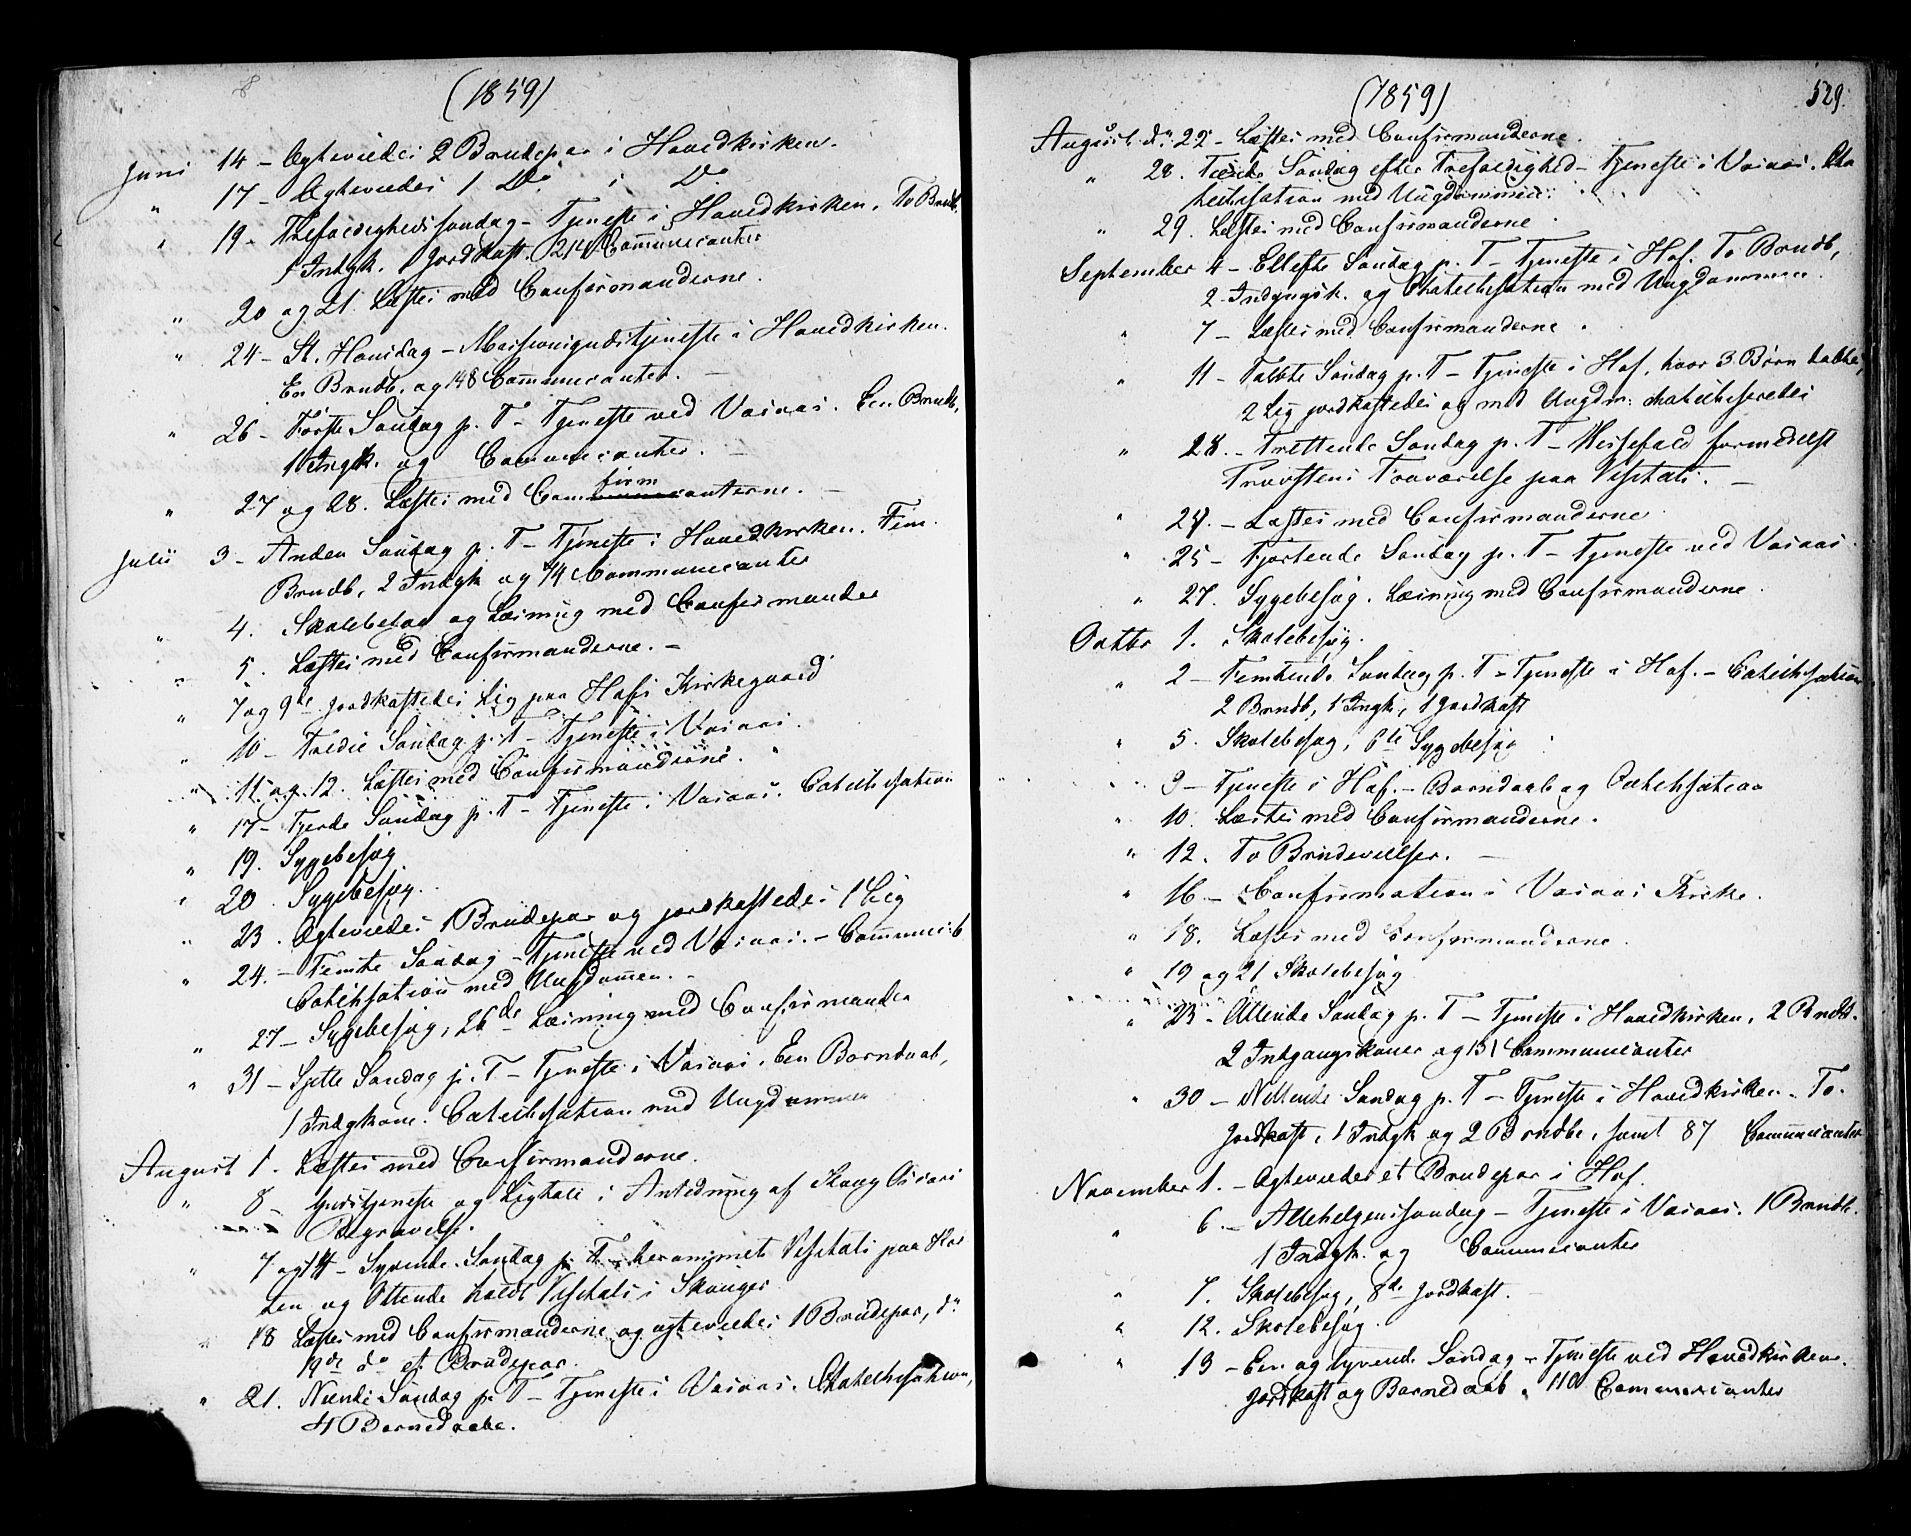 (1859)
Juni 14 - Ægteviedes 2 Brudepar i Hovedkirken.
" 17 - Ægteviedes 1 Do i Do
" 19 - Trefoldighedssøndag - Tjeneste i Hovedkirken. To Brndb.
1 Indgk. 1 Jordkast. 214 Communicanter
" 20 og 21 Læstes med Confirmanderne.
" 24 - St. Hansdag - Messeonigudstjeneste i Hovedkirken.
En Brndb. og 148 Communicanter. -
" 26 - Første Søndag p. T - Tjeneste ved Vasaas. Een Brndb,
1 Ingk. og Communicanter. -
" 27 og 28. Læstes med Confirmanterne. -
Julii 3 - Anden Søndag p. T - Tjeneste i Hovedkirken. Fem
Brndb, 2 Indgk og 74 Communicanter
" 4. Skolebesøg og Læsning med Confirmander
" 5. Læstes med Confirmanderne. -
" 7 og 9de jordkastedes Lig paa Hofs Kirkegaard
" 10 - Tredie Søndag p. T - Tjeneste i Vasaas.
" 11 og 12. Læstes med Confirmanderne.
" 17 - Fjerde Søndag p. T - Tjeneste i Vasaas. Catechesation
" 19. Sygebesøg
" 20. Sygebesøg.
" 23. Ægteviedes 1 Brudepar og jordkastedes 1 Lig
" 24. - Femte Søndag - Tjeneste ved Vasaas. -
Catechsation med Ungdommen. -
" 27 - Sygebesøg, 26de Læsning med Confirmander
" 31 - Sjette Søndag p. T - Tjeneste i Vasaas. Een Barndaab,
1 Indgkone. Catechesation med Ungdommen
August 1. Læstes med Confirmanderne.
" 8 - Gudstjeneste og Ligtale i Anledning af Kong Oscars
Begravelse.
" 7 og 14 - Syvende Søndag p. T - berammet Visitats paa Hol
den og Ottende holdt Visitats i Skouger
" 18 Læstes med Confirmanderne og ægteviedes 1 Brudepar, d:
19de do et Brudepar.
" 21. Niende Søndag p. T - Tjeneste i Vasaas. Chatechesation,
4 Barnedaabe.
(1859) 529.
August d: 22 - Læstes med Confirmanderne.
" 28. Tiende Søndag efter Trefoldighed - Tjeneste i Vasaas. Cha
techisation med Ungdommen.
" 29. Læstes med Confirmanderne
September 4 - Ellefte Søndag p. T - Tjeneste i Hof. To Brndb,
2 Indgngsk. og Chatechesation med Ungdommen.
" 7 - Læstes med Confirmanderne.
" 11 - Tolvte Søndag p. T - Tjeneste i Hof, hvor 3 Børn døbtes,
2 Lig jordkastedes og med Ungdm: chatechiseredes
" 28. - Trettende Søndag p. T - Messefald formedelst
Provstens Fraværelse paa Visitats. -
" 24. - Læstes med Confirmanderne
" 25 - Fjortende Søndag p. T - Tjeneste ved Vasaas.
" 27. Sygebesøg. Læsning med Confirmanderne.
Octbr 1. Skolebesøg.
" 2 - Femtende Søndag p. T - Tjeneste i Hof. - Catechesation
2 Brndb, 1 Ingk, 1 Jordkast
" 5. Skolebesøg, 6te Sygebesøg
" 9 - Tjeneste i Hof. - Barndaab og Catechsation
" 10. Læstes med Confirmanderne.
" 12. To Brudevielser. -
" 16. - Confirmation i Vasaas Kirke.
" 18. Læstes med Confirmanderne.
" 19 og 21 Skolebesøg
" 23 - Attende Søndag p. T - Tjeneste i Hovedkirken, 2 Brndb.
2 Indgangskoner og 131 Communicanter
" 30 - Nittende Søndag p. T - Tjeneste i Hovedkirken. To
Jordkast, 1 Indgk og 2 Brndbe, samt 87 Communicanter
November 1. - Ægteviedes et Brudepar i Hof.
" 6. - Allehelgenssøndag - Tjeneste i Vasaas. 1 Brndb.
1 Indgk. og Communicanter
" 7. Skolebesøg, 8de Jordkast. -
" 12. Skolebesøg.
" 13 - Een og tyvende Søndag - Tjeneste ved Hovedkirken.
Jordkast og Barnedaab. 110 Communicanter